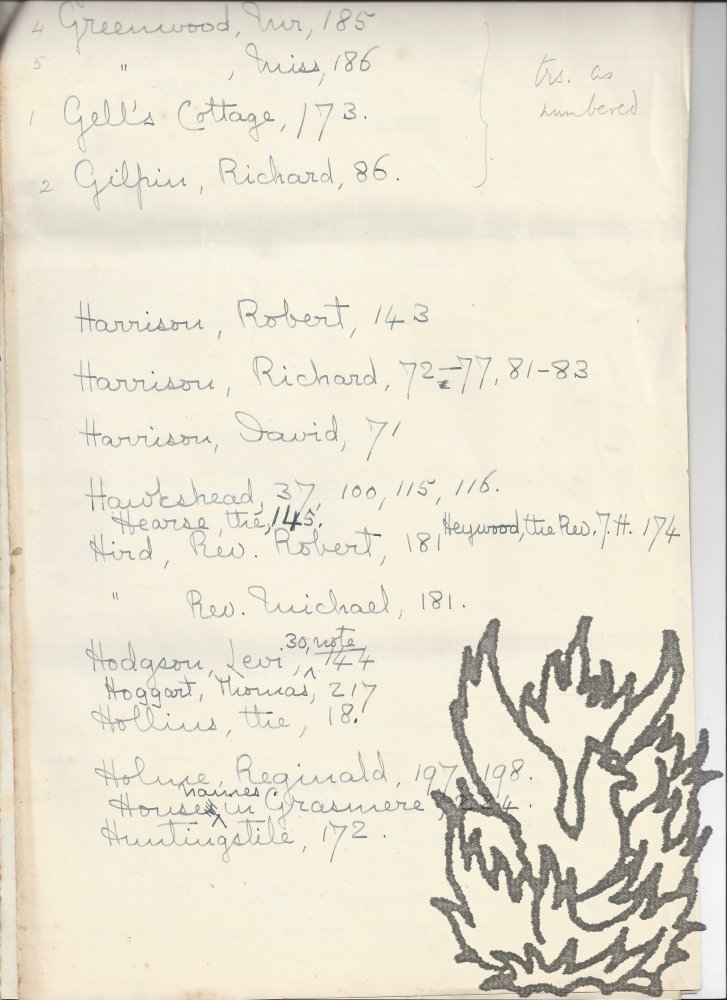 4 Greenwood, Mr, 185
5 " , Miss, 186
trs. as
numbered
1 Gell's Cottage, 173.
2 Gilpin, Richard, 86.
Harrison, Robert, 143
Harrison, Richard, 72-77, 81-83
Harrison, David, 71
Hawkshead, 37, 100, 115, 116.
Hearse, the, 145.
Heywood, the Rev. J. H. 174
Hird, Rev. Robert, 181
" Rev. Michael, 181.
Hodgson, Levi, 30, note, 144
Hoggart, Thomas, 217
Hollins, the, 18.
Holme, Reginald, 197, 198.
House names in Grasmere, 224.
Huntingstile, 172.